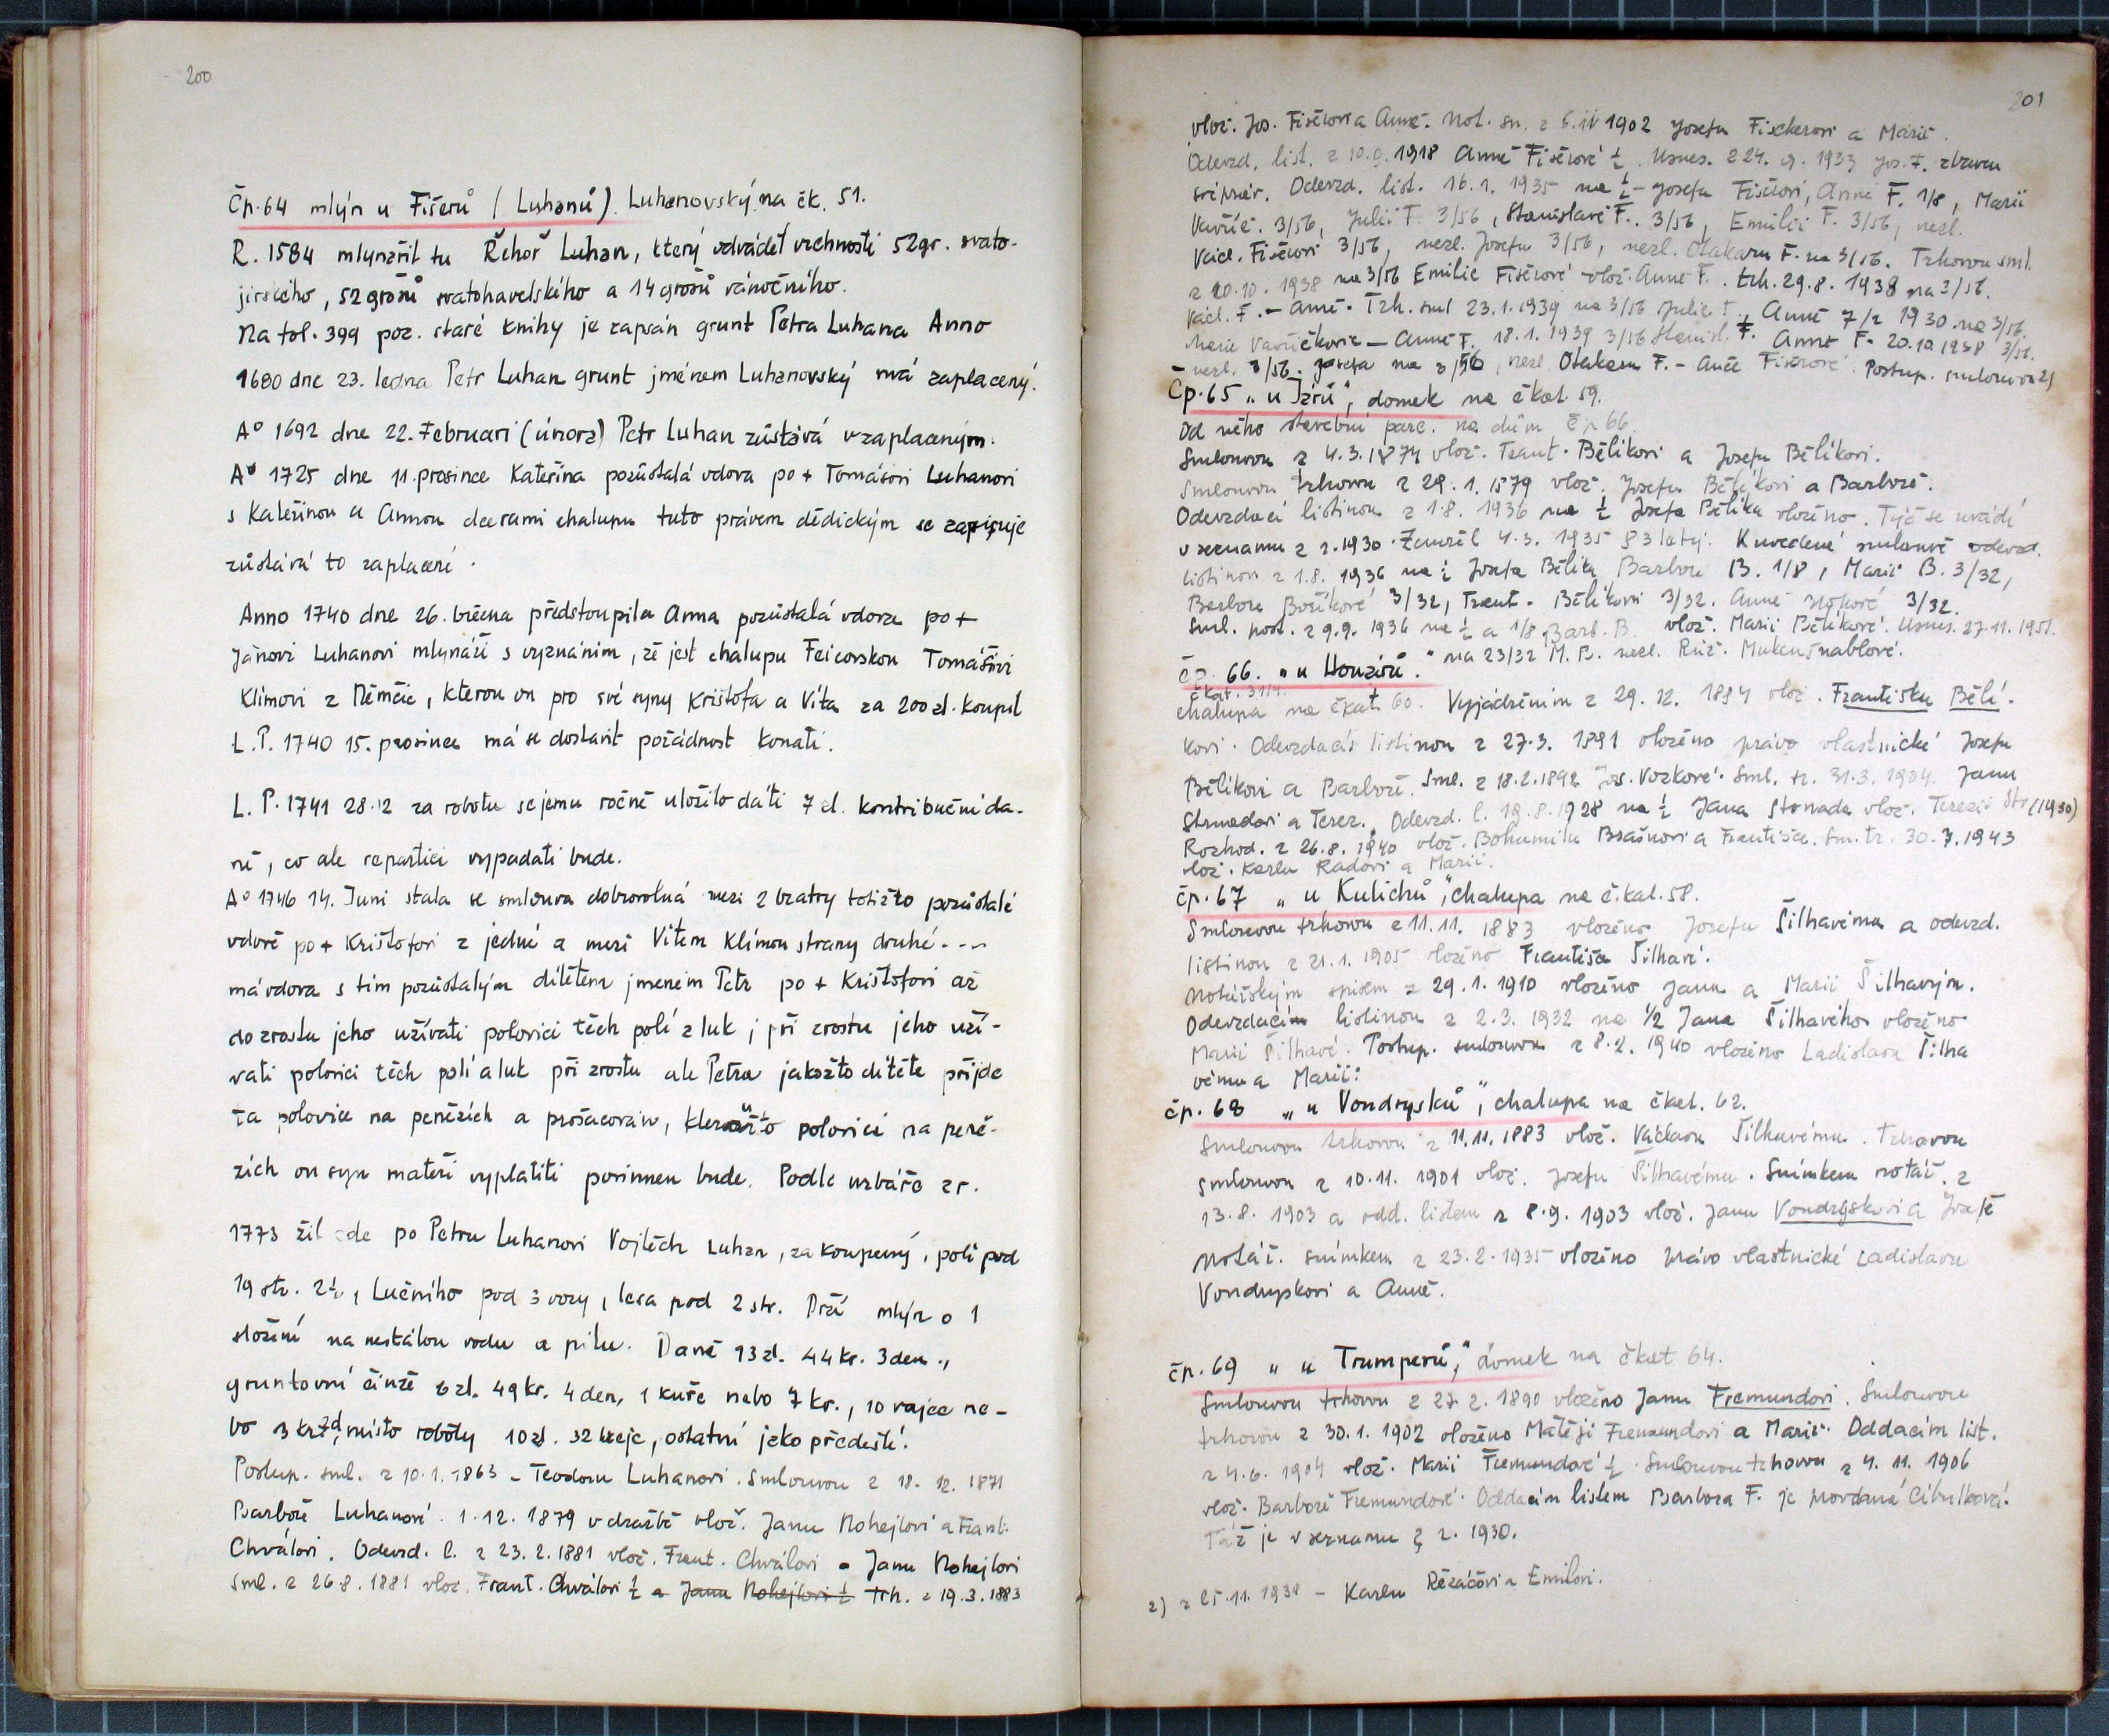 200
Čp. 64 mlýn u Fišerů (Luhanů). Luhanovský na čk. 51.
R. 1584 mlynařil tu Řehoř Luhan, který odváděl vrchnosti 52 gr. svato-
jirského, 52 grošů svatohavelského a 14 grošů vánočního.
Na fol. 399 poz. staré knihy je zapsán grunt Petra Luhana Anno
1680 dne 23. ledna Petr Luhan grunt jménem Luhanovský má zaplacený.
A° 1692 dne 22. Februari (února) Petr Luhan zůstává v zaplaceným.
A° 1725 dne 11. prosince Kateřina pozůstalá vdova po + Tomášovi Luhanovi
s Kateřinou a Annou dcerami chalupu tuto právem dědickým se zapisuje
zůstává to zaplacení.
Anno 1740 dne 26. března předstoupila Anna pozůstalá vdova po +
Janovi Luhanovi mlynáři s vyznáním, že jest chalupu Feicovskou Tomášovi
Klímovi z Němčic, kterou on pro své syny Krištofa a Víta za 200 zl. koupil
L. P. 1740 15. prosince má se dostavit požádnost konati.
L. P. 1741 28.12 za robotu se jemu ročně uložilo dáti 7 zl. kontribuční da-
ně, co ale repartici vypadati bude.
A° 1746 14. Juni stala se smlouva dobrovolná mezi 2 bratry totižto pozůstalé
vdově po + Krištofovi z jedné a mezi Vítem Klímou strany druhé ---
má vdova s tím pozůstalým dítětem jmenem Petr po + Krištofovi až
do zrostu jeho užívati polovici těch polí z luk; při zrostu jeho uží-
vati polovici těch polí a luk při zrostu ale Petra jakožto dítěte přijde
ta polovice na penězích a prošacován, kteroužto polovici na peně-
zích on syn mateři vyplatiti povinnen bude. Podle urbáře z r.
1773 žil zde po Petru Luhanovi Vojtěch Luhan, zakoupený, polí pod
19 str. 2 1/2, Lučního pod 3 vozy, lesa pod 2 str. Drží mlýn o 1
složení na nestálou vodu a pilu. Daně 13 zl. 44 kr. 3 den.,
gruntovní činže 6 zl. 49 kr. 4 den, 1 kuře nebo 7 kr., 10 vajec ne-
bo 3 kr 3 d, místo roboty 10 zl. 32 kreje, ostatní jako předešlé.
Postup. sml. z 10.1.1863 - Teodoru Luhanovi. Smlouvou z 18. 12. 1871
Barboře Luhanové. 1.12.1879 v dražbě vlož. Janu Nohejlovi a Frant.
Chválovi. Odevzd. l. z 23.2.1881 vlož. Frant. Chválovi a Janu Nohejlovi
Sml. z 26.8.1881 vlož. Frant. Chválovi 1/2 a Janu Nohejlovi 1/2 trh. z 19.3.1883
201
vlož. Jos. Fišerovi a Anně. Not. sn. z 6.IV 1902 Josefu Fischerovi a Marii.
Odevzd. list. z 10.9.1918 Anně Fišerové 1/2. Usnes. z 24. 9. 1933 Jos. F. zbaven
svépráv. Odevzd. list. 16.1.1935 na 1/2 - Josefu Fišerovi, Anně F. 1/8, Marii
Vavřič. 3/56, Julii F. 3/56, Stanislavě F. 3/56, Emilii F. 3/56, nezl.
Václ. Fišerovi 3/56, nezl. Josefu 3/56, nezl. Otakaru F. na 3/56. Trhovou sml.
z 20.10.1938 na 3/56 Emilie Fišerové vlož. Anně F. trh. 29.8.1938 na 3/56.
Václ. F. - Anně. Trh. sml 23.1.1939 na 3/56 Julie F., Anně 7/2 1930 na 3/56.
Marie Vavřičkovic - Anně F. 18.1.1939 3/56 Stanisl. F. Anně F. 20.10.1938 3/56.
nezl. 3/56. Josefa na 3/56, nezl. Otakara F. - Anně Fišerové. Postup. smlouvou 2)
Čp. 65 „u Jírů", domek na čkat. 59.
Od něho stavební parc. na dům čp 66.
Smlouvou z 4.3.1874 vlož. Frant. Bělíkovi a Josefu Bělíkovi.
Smlouvou trhovou z 29.1.1879 vlož. Josefu Bělíkovi a Barboře.
Odevzdací listinou z 1.8.1936 na 1/2 Josefa Bělíka vloženo. Týž se uvádí
v seznamu z r. 1930. Zemřel 4.3.1935 83letý. K uvedené smlouvě odevzd.
listinou z 1.8.1936 na 1/2 Josefa Bělíka Barboře B. 1/8, Marii B. 3/32,
Barboře Boříkové 3/32, Frant. Bělíkovi 3/32. Anně 3/32.
Sml. post. z 9.9.1936 na 1/2 a 1/8 Barb. B. vlož. Marii Bělíkové. Usnes. 27.11.1951.
na 23/32 M. B. nezl. Růž. Mukenšnablové.
čp. 66. „u Honzírů."
čkat. 31/4.
chalupa na čkat. 60. Vyjádřením z 29.12.1884 vlož. Františku Bělí-
kovi. Odevzdací listinou z 27.3.1891 vloženo právo vlastnické Josefu
Bělíkovi a Barboře. Sml. z 18.2.1892 Jos. Vozkové. Sml. tr. 31.3.1904. Janu
Strnadovi a Terez. Odevzd. l. 18.8.1928 na 1/2 Jana Strnada vlož. Terezii Str (1930)
Rozhod. z 26.8.1940 vlož. Bohumilu Brašnovi a Františce. Sm. tr. 30.7.1943
vlož. Karlu Radovi a Marii.
čp. 67 „u Kulichů", chalupa na č. kat. 58.
Smlouvou trhovou z 11.11.1883 vloženo Josefu Šilhavému a odevzd.
listinou z 21.1.1905 vloženo Františce Šilhavé.
Notářským spisem z 29.1.1910 vloženo Janu a Marii Šilhavým.
Odevzdacím listinou z 2.3.1932 na 1/2 Jana Šilhavého vloženo
Marii Šilhavé. Postup. smlouvou z 8.2.1940 vloženo Ladislavu Šilha
vému a Marii:
čp. 68 „u Vondrysků", chalupa na čkat. 62.
Smlouvou trhovou z 11.11.1883 vlož. Václavu Šilhavému. Trhovou
smlouvou z 10.11.1901 vlož. Josefu Šilhavému. Snímkem notář. z
13.8.1903 a odd. listem z 8.9.1903 vlož. Janu Vondryskovi a Josefě
Notář. snímkem z 23.2.1935 vloženo právo vlastnické Ladislavu
Vondryskovi a Anně.
čp. 69 „u Trumperů", domek na čkat 64.
Smlouvou trhovou z 27.2.1890 vloženo Janu Fremundovi. Smlouvou
trhovou z 30.1.1902 vloženo Matěji Fremundovi a Marii. Oddacím list.
z 4.6.1904 vlož. Marii Fremundové 1/2. Smlouvou trhovou z 4.11.1906
vlož. Barboře Fremundové. Oddacím listem Barbora F. je provdaná Cibulková.
Táž je v seznamu z r. 1930.
2) z 25.11.1938 - Karlu Řezáčovi a Emilovi.